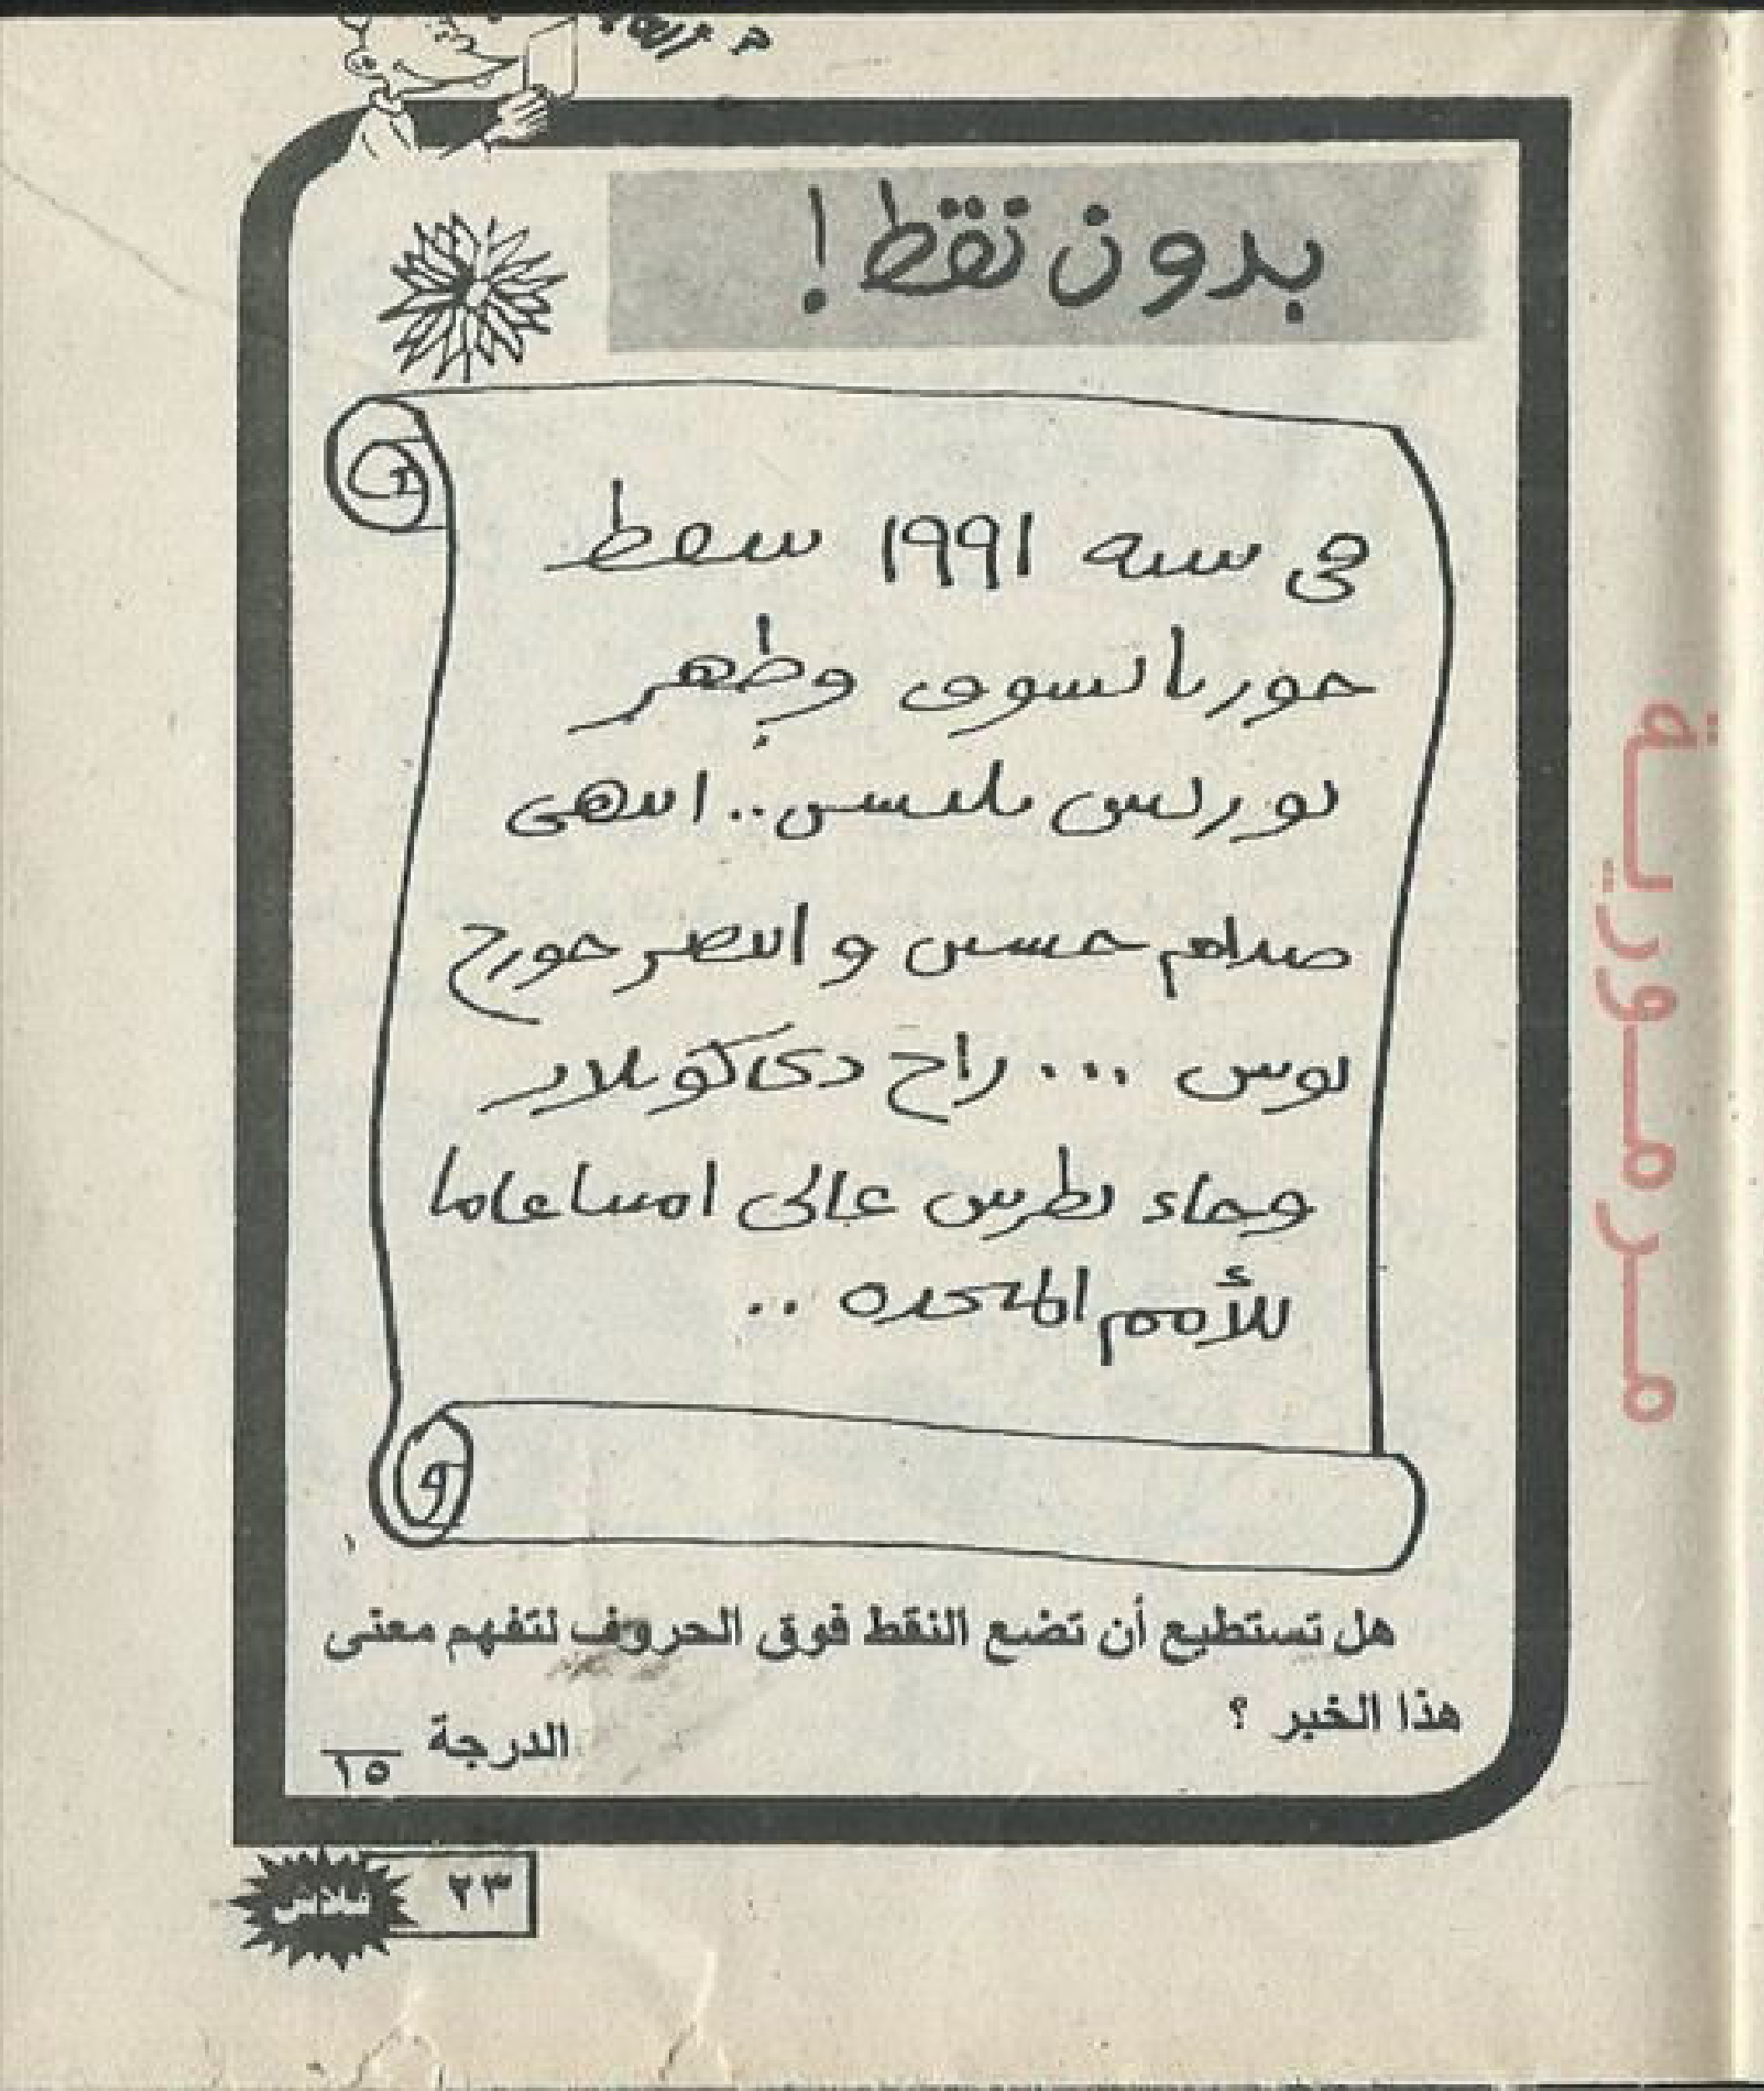 بدون نقط !
ڡى سىه ١٩٩١ سٯط
حورىاىسوڡ وطهر
ىورىس ىلىسىں .. اىىهى
صدام حسىں و اىىصر حورح
ىوس ... راح دى كوىلار
وحاء ىطرس عالى امىىا عاما
للأمم المىحده ..
هل تستطيع أن تضع النقط فوق الحروف لتفهم معنى
هذا الخبر ؟
الدرجة ١٥
٢٣
فلاش
مرمورية